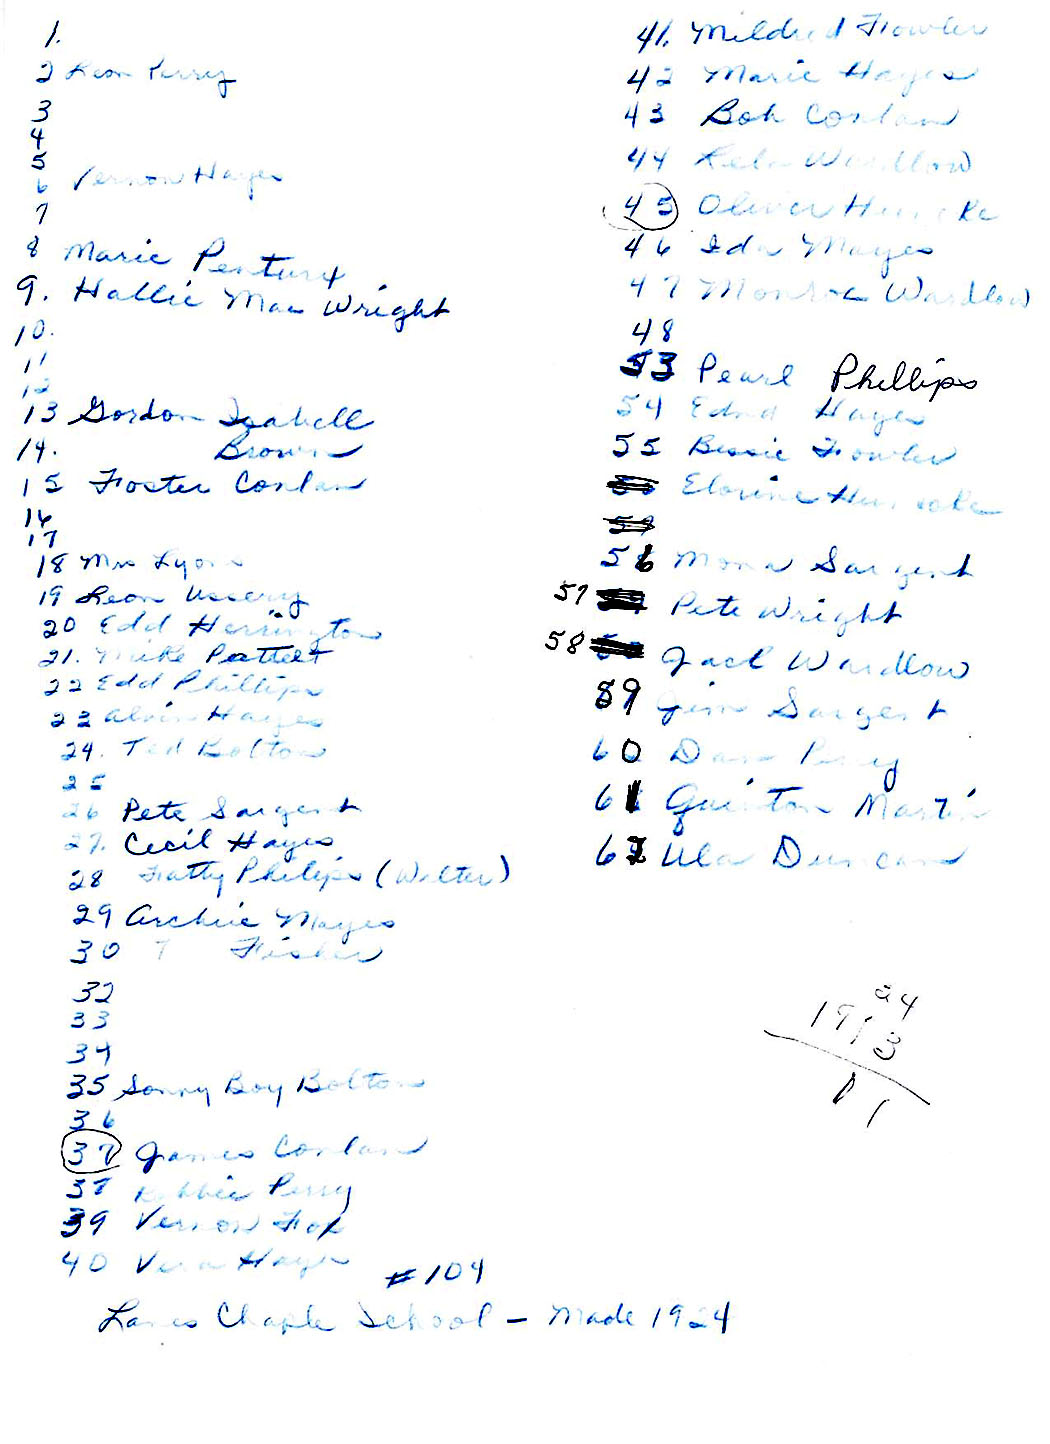 1.
2 Leon Perry
3
4
5
6 Vernon Hayes
7
8 Marie Pentury
9. Hallie Mae Wright
10.
11
12
13 Gordon Isabell
14. Brown
15 Foster Conlan
16
17
18 Mrs Lyons
19 Leon Ussery
20 Edd Herrington
21. Mike Pattet
22 Edd Phillips
23 Alvin Hayes
24. Ted Bolton
25
26 Pete Sargent
27. Cecil Hayes
28 Fatty Philips (Walter)
29 Archie Mayes
30 T Fisher
32
33
34
35 Sonny Boy Bolton
36
37 James Conlan
38 Robbie Perry
39 Vernon Fox
40 Vera Hayes
#104
Lanes Chaple School - Made 1924
41. Mildred Fowler
42 Marie Hayes
43 Bob Conlan
44 Wardlow
45 Oliver
46 Ida Mayes
47 Monroe Wardlow
48
53 Pearl Phillips
54 Edna Hayes
55 Bessie Fowler
Elorine
56 Mona Sargent
57 Pete Wright
58 Jack Wardlow
59 Jim Sargent
60 Dan Perry
61 Quinton Martin
62 Ula Duncan
24
1913
11